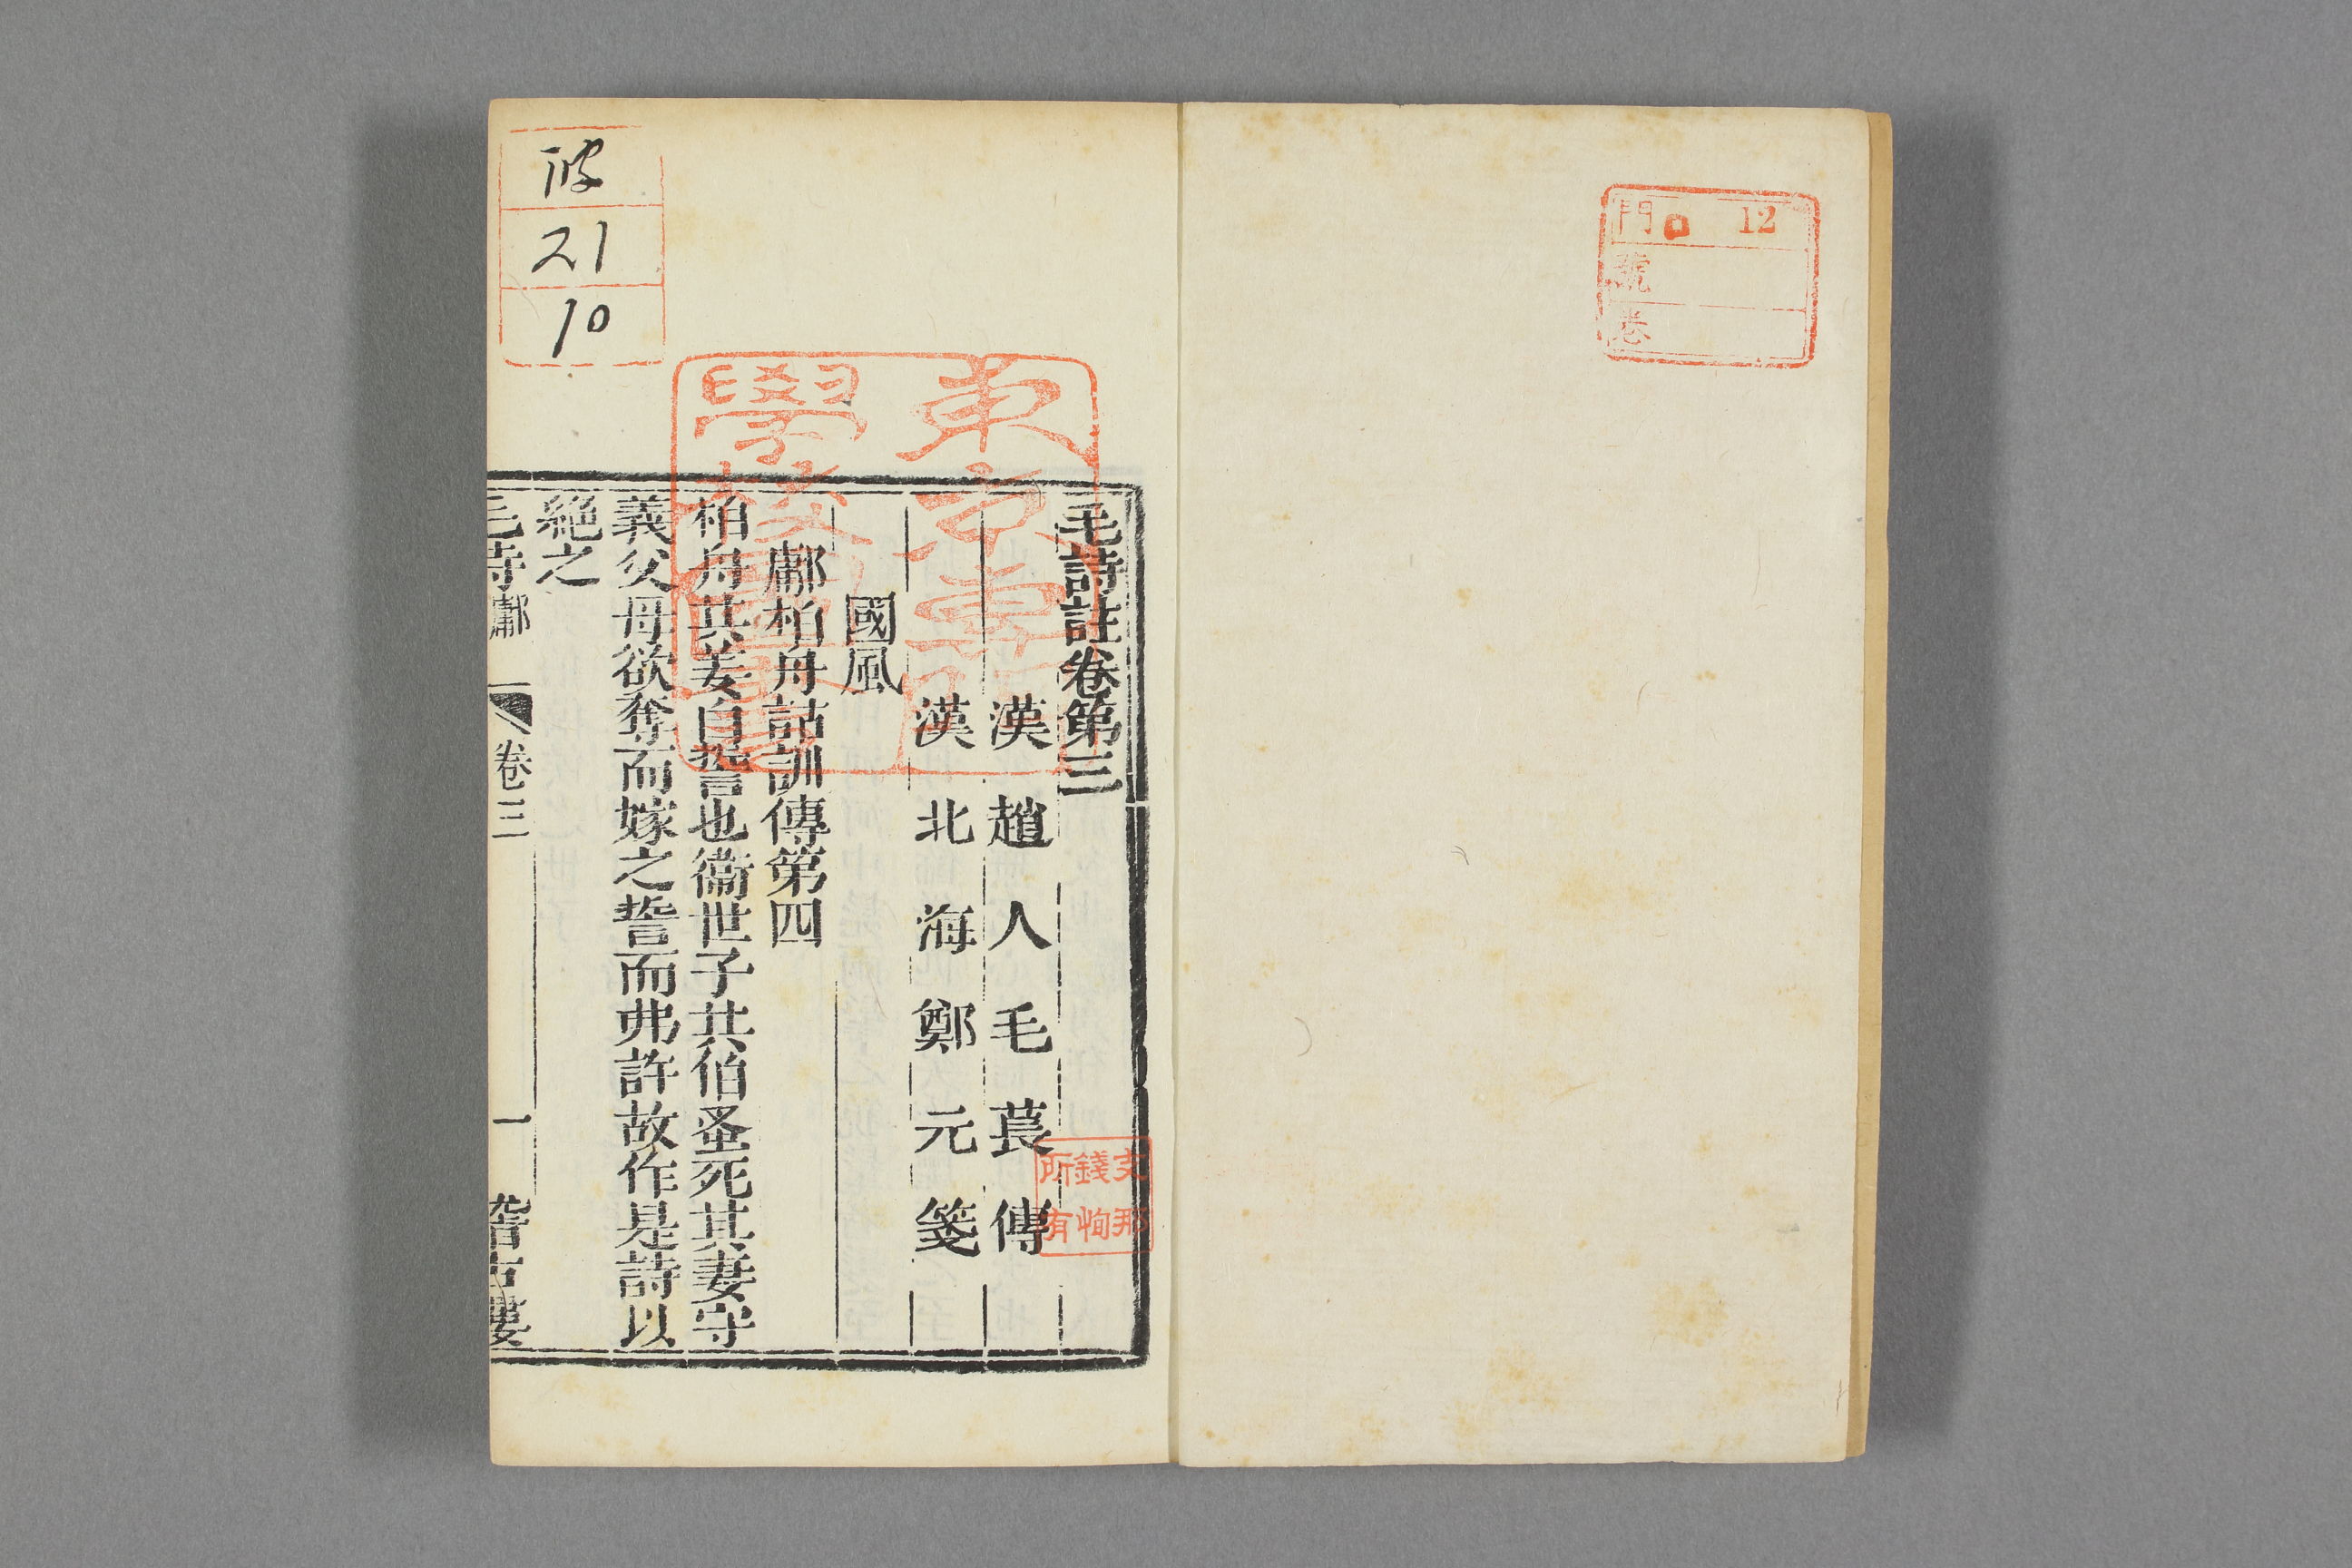 門 ロ 12
號
卷
毛詩註卷第三
漢趙人毛萇傳
漢北海鄭元箋
國風
鄘柏舟詁訓傳第四
柏舟共姜自誓也衞世子共伯蚤死其妻守
義父母欲奪而嫁之誓而弗許故作是詩以
絕之
毛詩鄘 卷三 一 稽古樓
東京專
學校
支那
錢恂
所有
21
10